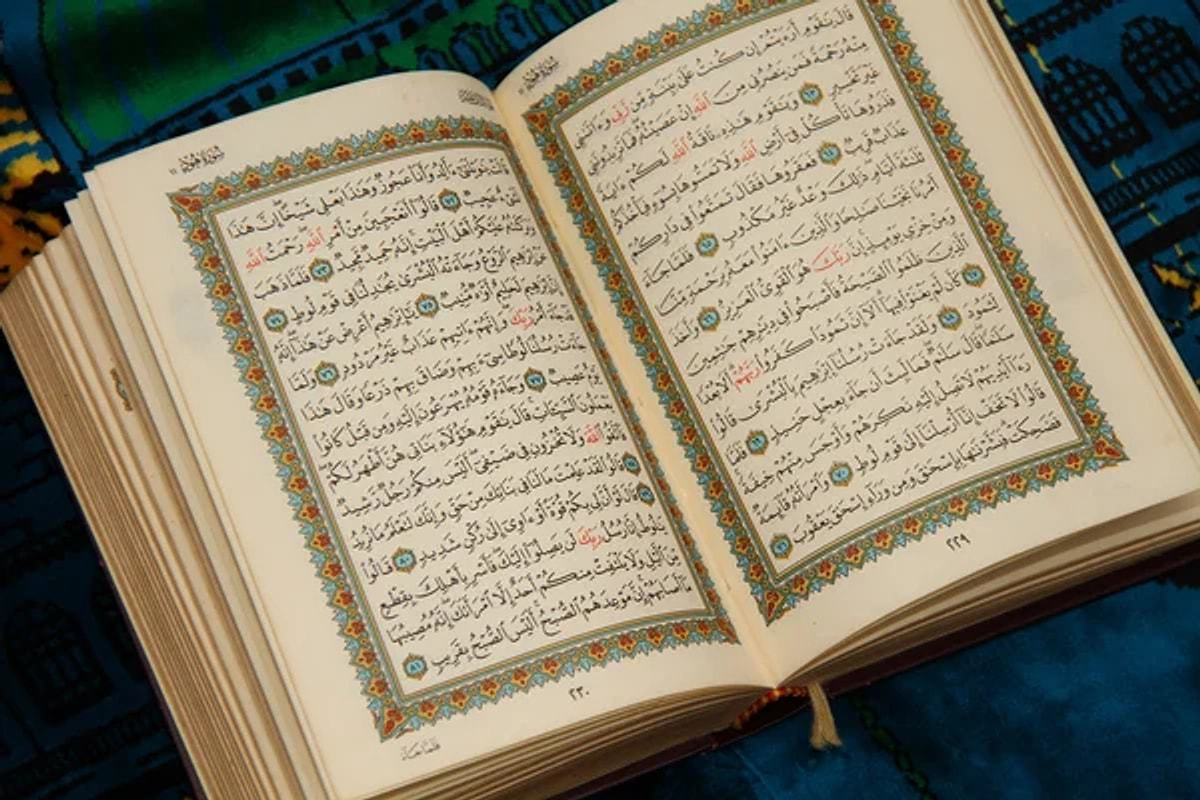 سُورَةُ هُودٍ
قَالَ يَٰقَوْمِ أَرَءَيْتُمْ إِن كُنتُ عَلَىٰ بَيِّنَةٍ مِّن رَّبِّى وَءَاتَىٰنِى
مِنْهُ رَحْمَةً فَمَن يَنصُرُنِى مِنَ ٱللَّهِ إِنْ عَصَيْتُهُۥ فَمَا تَزِيدُونَنِى
غَيْرَ تَخْسِيرٍ ٦٣ وَيَٰقَوْمِ هَٰذِهِۦ نَاقَةُ ٱللَّهِ لَكُمْ ءَايَةً
فَذَرُوهَا تَأْكُلْ فِىٓ أَرْضِ ٱللَّهِ وَلَا تَمَسُّوهَا بِسُوٓءٍ فَيَأْخُذَكُمْ
عَذَابٌ قَرِيبٌ ٦٤ فَعَقَرُوهَا فَقَالَ تَمَتَّعُوا۟ فِى دَارِكُمْ
ثَلَٰثَةَ أَيَّامٍ ذَٰلِكَ وَعْدٌ غَيْرُ مَكْذُوبٍ ٦٥ فَلَمَّا جَآءَ
أَمْرُنَا نَجَّيْنَا صَٰلِحًا وَٱلَّذِينَ ءَامَنُوا۟ مَعَهُۥ بِرَحْمَةٍ مِّنَّا
وَمِنْ خِزْىِ يَوْمِئِذٍ إِنَّ رَبَّكَ هُوَ ٱلْقَوِىُّ ٱلْعَزِيزُ ٦٦ وَأَخَذَ
ٱلَّذِينَ ظَلَمُوا۟ ٱلصَّيْحَةُ فَأَصْبَحُوا۟ فِى دِيَٰرِهِمْ جَٰثِمِينَ ٦٧
كَأَن لَّمْ يَغْنَوْا۟ فِيهَآ أَلَآ إِنَّ ثَمُودَا۟ كَفَرُوا۟ رَبَّهُمْ أَلَا بُعْدًا
لِّثَمُودَ ٦٨ وَلَقَدْ جَآءَتْ رُسُلُنَآ إِبْرَٰهِيمَ بِٱلْبُشْرَىٰ قَالُوا۟
سَلَٰمًا قَالَ سَلَٰمٌ فَمَا لَبِثَ أَن جَآءَ بِعِجْلٍ حَنِيذٍ ٦٩ فَلَمَّا
رَءَآ أَيْدِيَهُمْ لَا تَصِلُ إِلَيْهِ نَكِرَهُمْ وَأَوْجَسَ مِنْهُمْ خِيفَةً
قَالُوا۟ لَا تَخَفْ إِنَّآ أُرْسِلْنَآ إِلَىٰ قَوْمِ لُوطٍ ٧٠ وَٱمْرَأَتُهُۥ قَآئِمَةٌ
فَضَحِكَتْ فَبَشَّرْنَٰهَا بِإِسْحَٰقَ وَمِن وَرَآءِ إِسْحَٰقَ يَعْقُوبَ ٧١
٢٢٩
سُورَةُ هُودٍ ١١
قَالَتْ يَٰوَيْلَتَىٰٓ ءَأَلِدُ وَأَنَا۠ عَجُوزٌ وَهَٰذَا بَعْلِى شَيْخًا إِنَّ هَٰذَا
لَشَىْءٌ عَجِيبٌ ٧٢ قَالُوٓا۟ أَتَعْجَبِينَ مِنْ أَمْرِ ٱللَّهِ رَحْمَتُ ٱللَّهِ
وَبَرَكَٰتُهُۥ عَلَيْكُمْ أَهْلَ ٱلْبَيْتِ إِنَّهُۥ حَمِيدٌ مَّجِيدٌ ٧٣ فَلَمَّا ذَهَبَ
عَنْ إِبْرَٰهِيمَ ٱلرَّوْعُ وَجَآءَتْهُ ٱلْبُشْرَىٰ يُجَٰدِلُنَا فِى قَوْمِ لُوطٍ ٧٤
إِنَّ إِبْرَٰهِيمَ لَحَلِيمٌ أَوَّٰهٌ مُّنِيبٌ ٧٥ يَٰٓإِبْرَٰهِيمُ أَعْرِضْ عَنْ هَٰذَآ إِنَّهُۥ
قَدْ جَآءَ أَمْرُ رَبِّكَ وَإِنَّهُمْ ءَاتِيهِمْ عَذَابٌ غَيْرُ مَرْدُودٍ ٧٦ وَلَمَّا
جَآءَتْ رُسُلُنَا لُوطًا سِىٓءَ بِهِمْ وَضَاقَ بِهِمْ ذَرْعًا وَقَالَ هَٰذَا
يَوْمٌ عَصِيبٌ ٧٧ وَجَآءَهُۥ قَوْمُهُۥ يُهْرَعُونَ إِلَيْهِ وَمِن قَبْلُ كَانُوا۟
يَعْمَلُونَ ٱلسَّيِّـَٔاتِ قَالَ يَٰقَوْمِ هَٰٓؤُلَآءِ بَنَاتِى هُنَّ أَطْهَرُ لَكُمْ
فَٱتَّقُوا۟ ٱللَّهَ وَلَا تُخْزُونِ فِى ضَيْفِىٓ أَلَيْسَ مِنكُمْ رَجُلٌ رَّشِيدٌ
٧٨ قَالُوا۟ لَقَدْ عَلِمْتَ مَا لَنَا فِى بَنَاتِكَ مِنْ حَقٍّ وَإِنَّكَ لَتَعْلَمُ مَا نُرِيدُ
٧٩ قَالَ لَوْ أَنَّ لِى بِكُمْ قُوَّةً أَوْ ءَاوِىٓ إِلَىٰ رُكْنٍ شَدِيدٍ ٨٠ قَالُوا۟
يَٰلُوطُ إِنَّا رُسُلُ رَبِّكَ لَن يَصِلُوٓا۟ إِلَيْكَ فَأَسْرِ بِأَهْلِكَ بِقِطْعٍ
مِّنَ ٱلَّيْلِ وَلَا يَلْتَفِتْ مِنكُمْ أَحَدٌ إِلَّا ٱمْرَأَتَكَ إِنَّهُۥ مُصِيبُهَا
مَآ أَصَابَهُمْ إِنَّ مَوْعِدَهُمُ ٱلصُّبْحُ أَلَيْسَ ٱلصُّبْحُ بِقَرِيبٍ ٨١
٢٣٠
فَلَمَّا جَآءَ